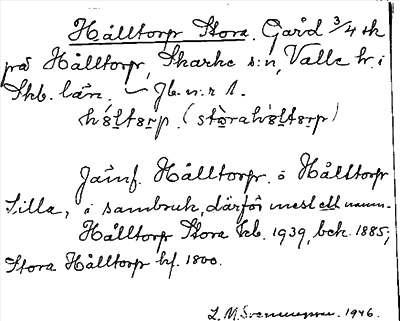 Hålltorp Stora. Gård 3/4 mtl
på Hålltorp, Skarke s:n, Valle hd i
Skb. län. — Jb. n:r 1.
hɵ̀ltɵrp. (stòrahɵ́ltɵrp)
Jämf. Hålltorp o Hålltorp
Lilla, i sambruk, därför mest ett namn.
Hålltorp Stora kb. 1939, bek. 1885,
Stora Hålltorp hf. 1800.
1946.